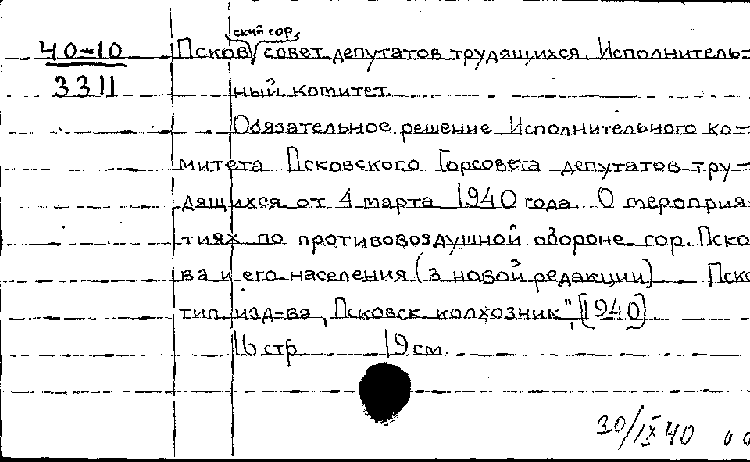 40-10
3311
ский гор.
Псков совет депутатов трудящихся. Исполнитель-
ный комитет.
Обязательное решение Исполнительного ко-
митета Псковского Горсовета депутатов тру-
дящихся от 4 марта 1940 года. О мероприя-
тиях по противовоздушной обороне гор. Пско
ва и его населения (в новой редакции) Пско
тип. изд-ва „Псковск. колхозник", [1940]
16 стр. 19 см.
30/IX 40